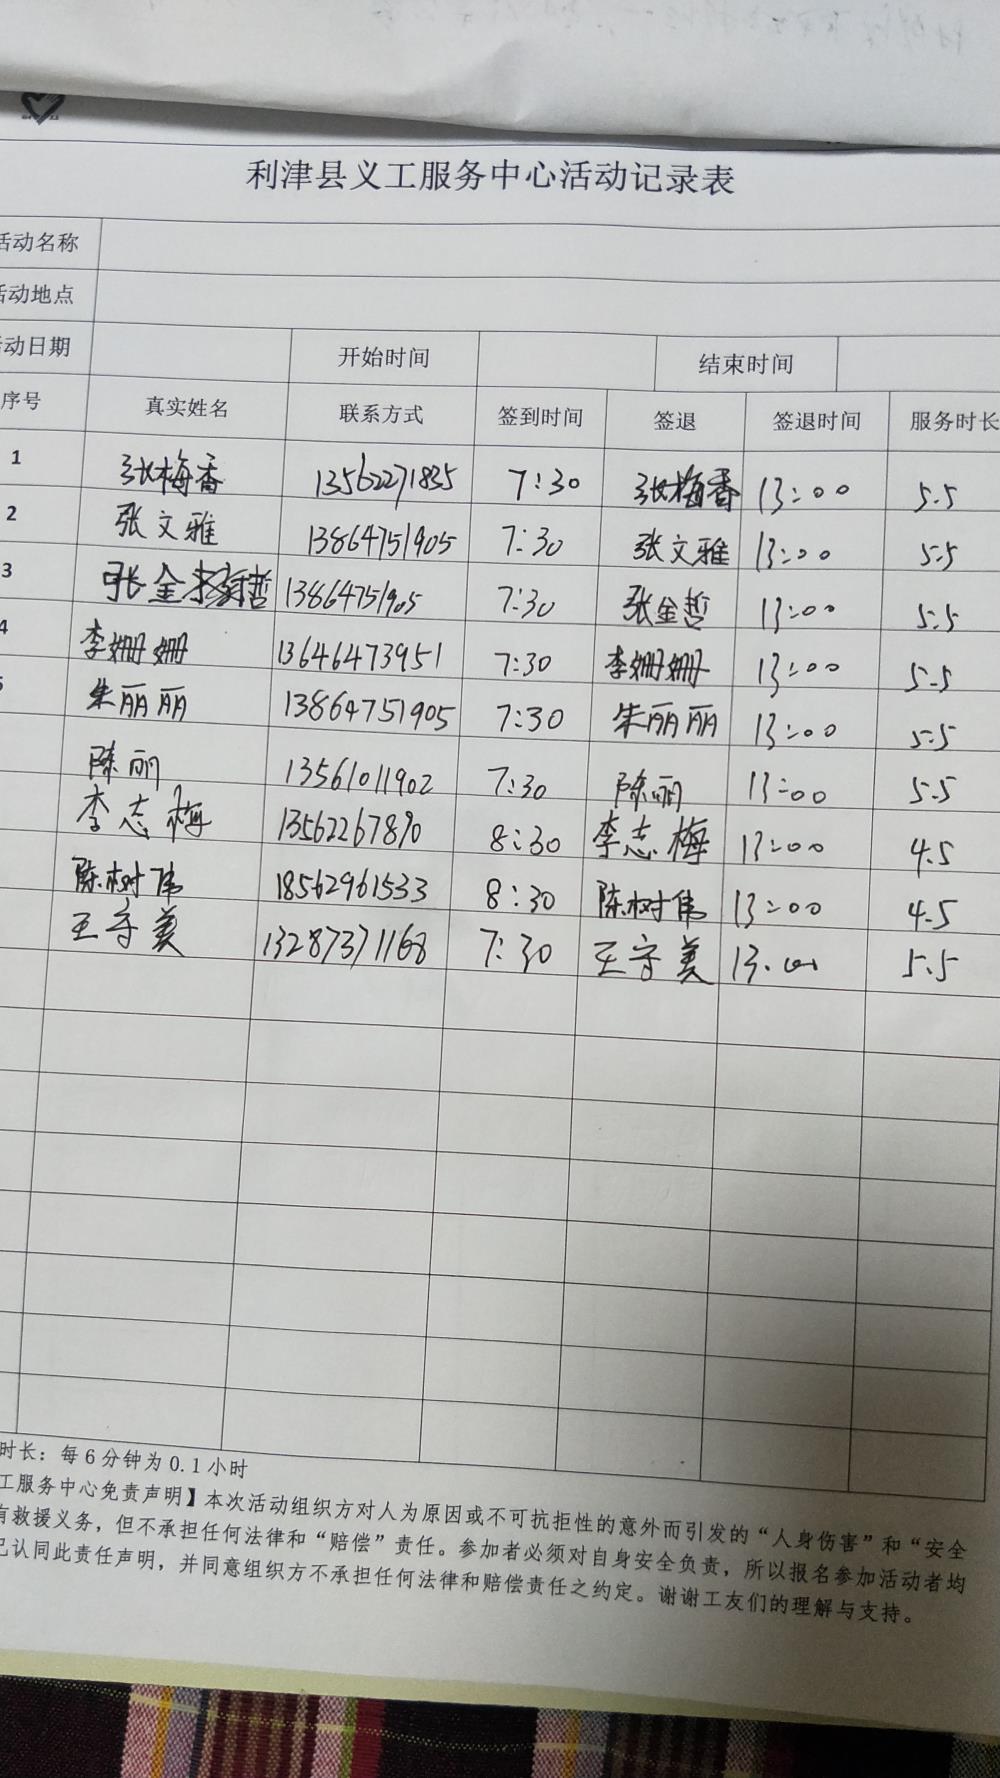 利津县义工服务中心活动记录表
活动名称
活动地点
活动日期 开始时间 结束时间
序号 真实姓名 联系方式 签到时间 签退 签退时间 服务时长
1 张梅香 13562271835 7:30 张梅香 13:00 5.5
2 张文雅 13864751905 7:30 张文雅 13:00 5.5
3 张金哲 13864751905 7:30 张金哲 13:00 5.5
4 李姗姗 13646473951 7:30 李姗姗 13:00 5.5
5 朱丽丽 13864751905 7:30 朱丽丽 13:00 5.5
陈丽 13561011902 7:30 陈丽 13:00 5.5
李志梅 13562267890 8:30 李志梅 13:00 4.5
陈树伟 18562961533 8:30 陈树伟 13:00 4.5
王守美 13287371168 7:30 王守美 13.00 5.5
时长：每6分钟为0.1小时
工服务中心免责声明】本次活动组织方对人为原因或不可抗拒性的意外而引发的“人身伤害”和“安全
有救援义务，但不承担任何法律和“赔偿”责任。参加者必须对自身安全负责，所以报名参加活动者均
已认同此责任声明，并同意组织方不承担任何法律和赔偿责任之约定。谢谢工友们的理解与支持。